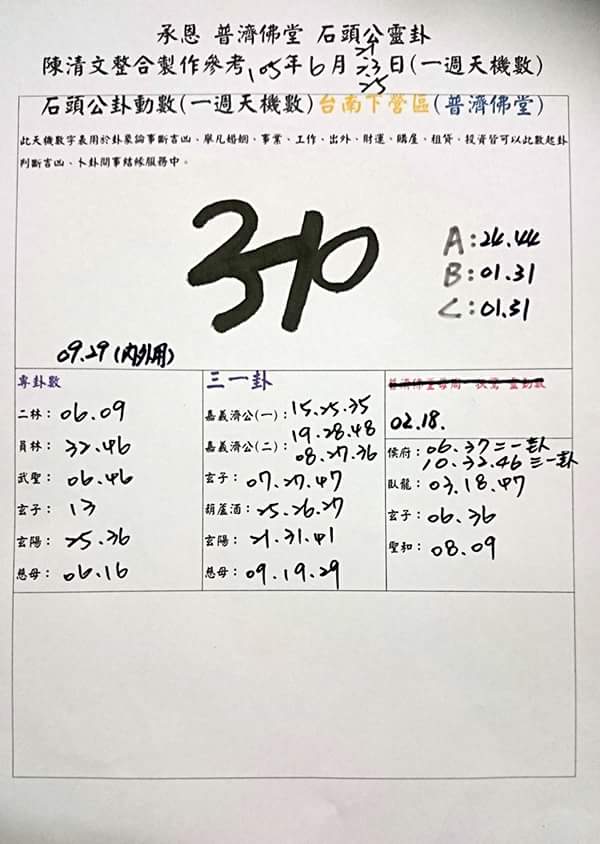 承恩 普濟佛堂 石頭公靈卦
21
陳清文整合製作參考,105年6月23日(一週天機數)
25
石頭公卦動數(一週天機數)台南下營區(普濟佛堂)
此天機數字表用於卦象論事斷吉凶、舉凡婚姻、事業、工作、出外、財運、購屋、租賃、投資皆可以此數起卦
判斷吉凶、卜卦問事結緣服務中。
A:24.44
B:01.31
C:01.31
09.29(內外用)
專卦數
二林:06.09
員林:32.46
武聖:06.46
玄子:13
玄陽:25.36
慈母:06.16
三一卦
嘉義濟公(一):15.25.35
嘉義濟公(二):19.28.48
08.27.36
玄子:07.27.47
葫蘆酒:25.26.27
玄陽:21.31.41
慈母:09.19.29
02.18.
侯府:06.37二一卦
10.32.46三一卦
臥龍:03.18.47
玄子:06.36
聖和:08.09